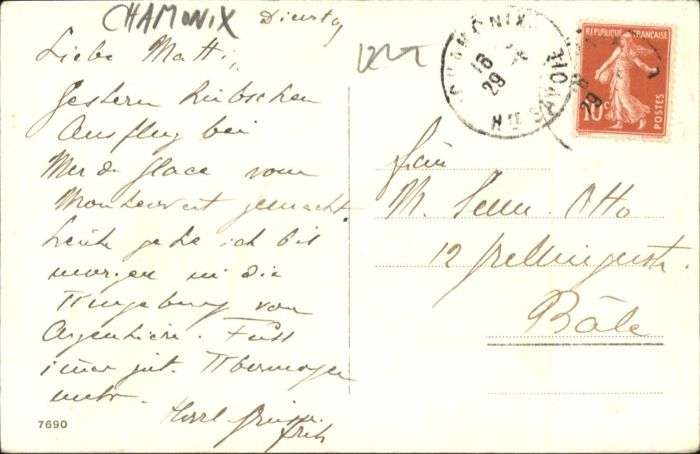 CHAMONIX
Dienstag
Liebe Matti,
Gestern hübschen
Ausflug bei
Mer de Glace vom
Montenvert gemacht.
Heute gehe ich bis
morgen in die
Umgebung von
Argentière. Fuss
immer gut. Übermorgen
mehr.
Herzl. Grüsse
7690
CHAMONIX
18
29
HTE SAVOIE
REPUBLIQUE FRANÇAISE
10c
POSTES
29
Frau
M. Senn-Otto
12
Bâle